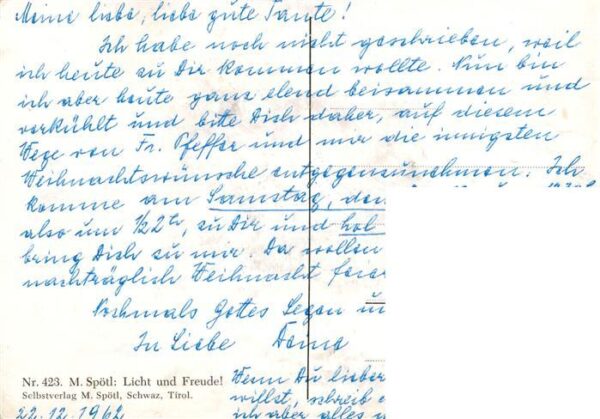 Meine liebe, liebe gute Tante!
Ich habe noch nicht geschrieben, weil
ich heute zu Dir kommen wollte. Nun bin
ich aber heute ganz elend beisammen und
verkühlt und bitte Dich daher, auf diesem
Wege von Fr. Pfeffer und mir die innigsten
Weihnachtswünsche entgegenzunehmen. Ich
komme am Samstag, den
also um ½2 h, zu Dir und hol
bring Dich zu mir. Da wollen
nachträglich Weihnacht feier
Nochmals Gottes Segen u
In Liebe Deine
Nr. 423. M. Spötl: Licht und Freude!
Selbstverlag M. Spötl, Schwaz, Tirol.
22.12.1962
Wenn Du lieber
willst, schreib e
ich aber alles